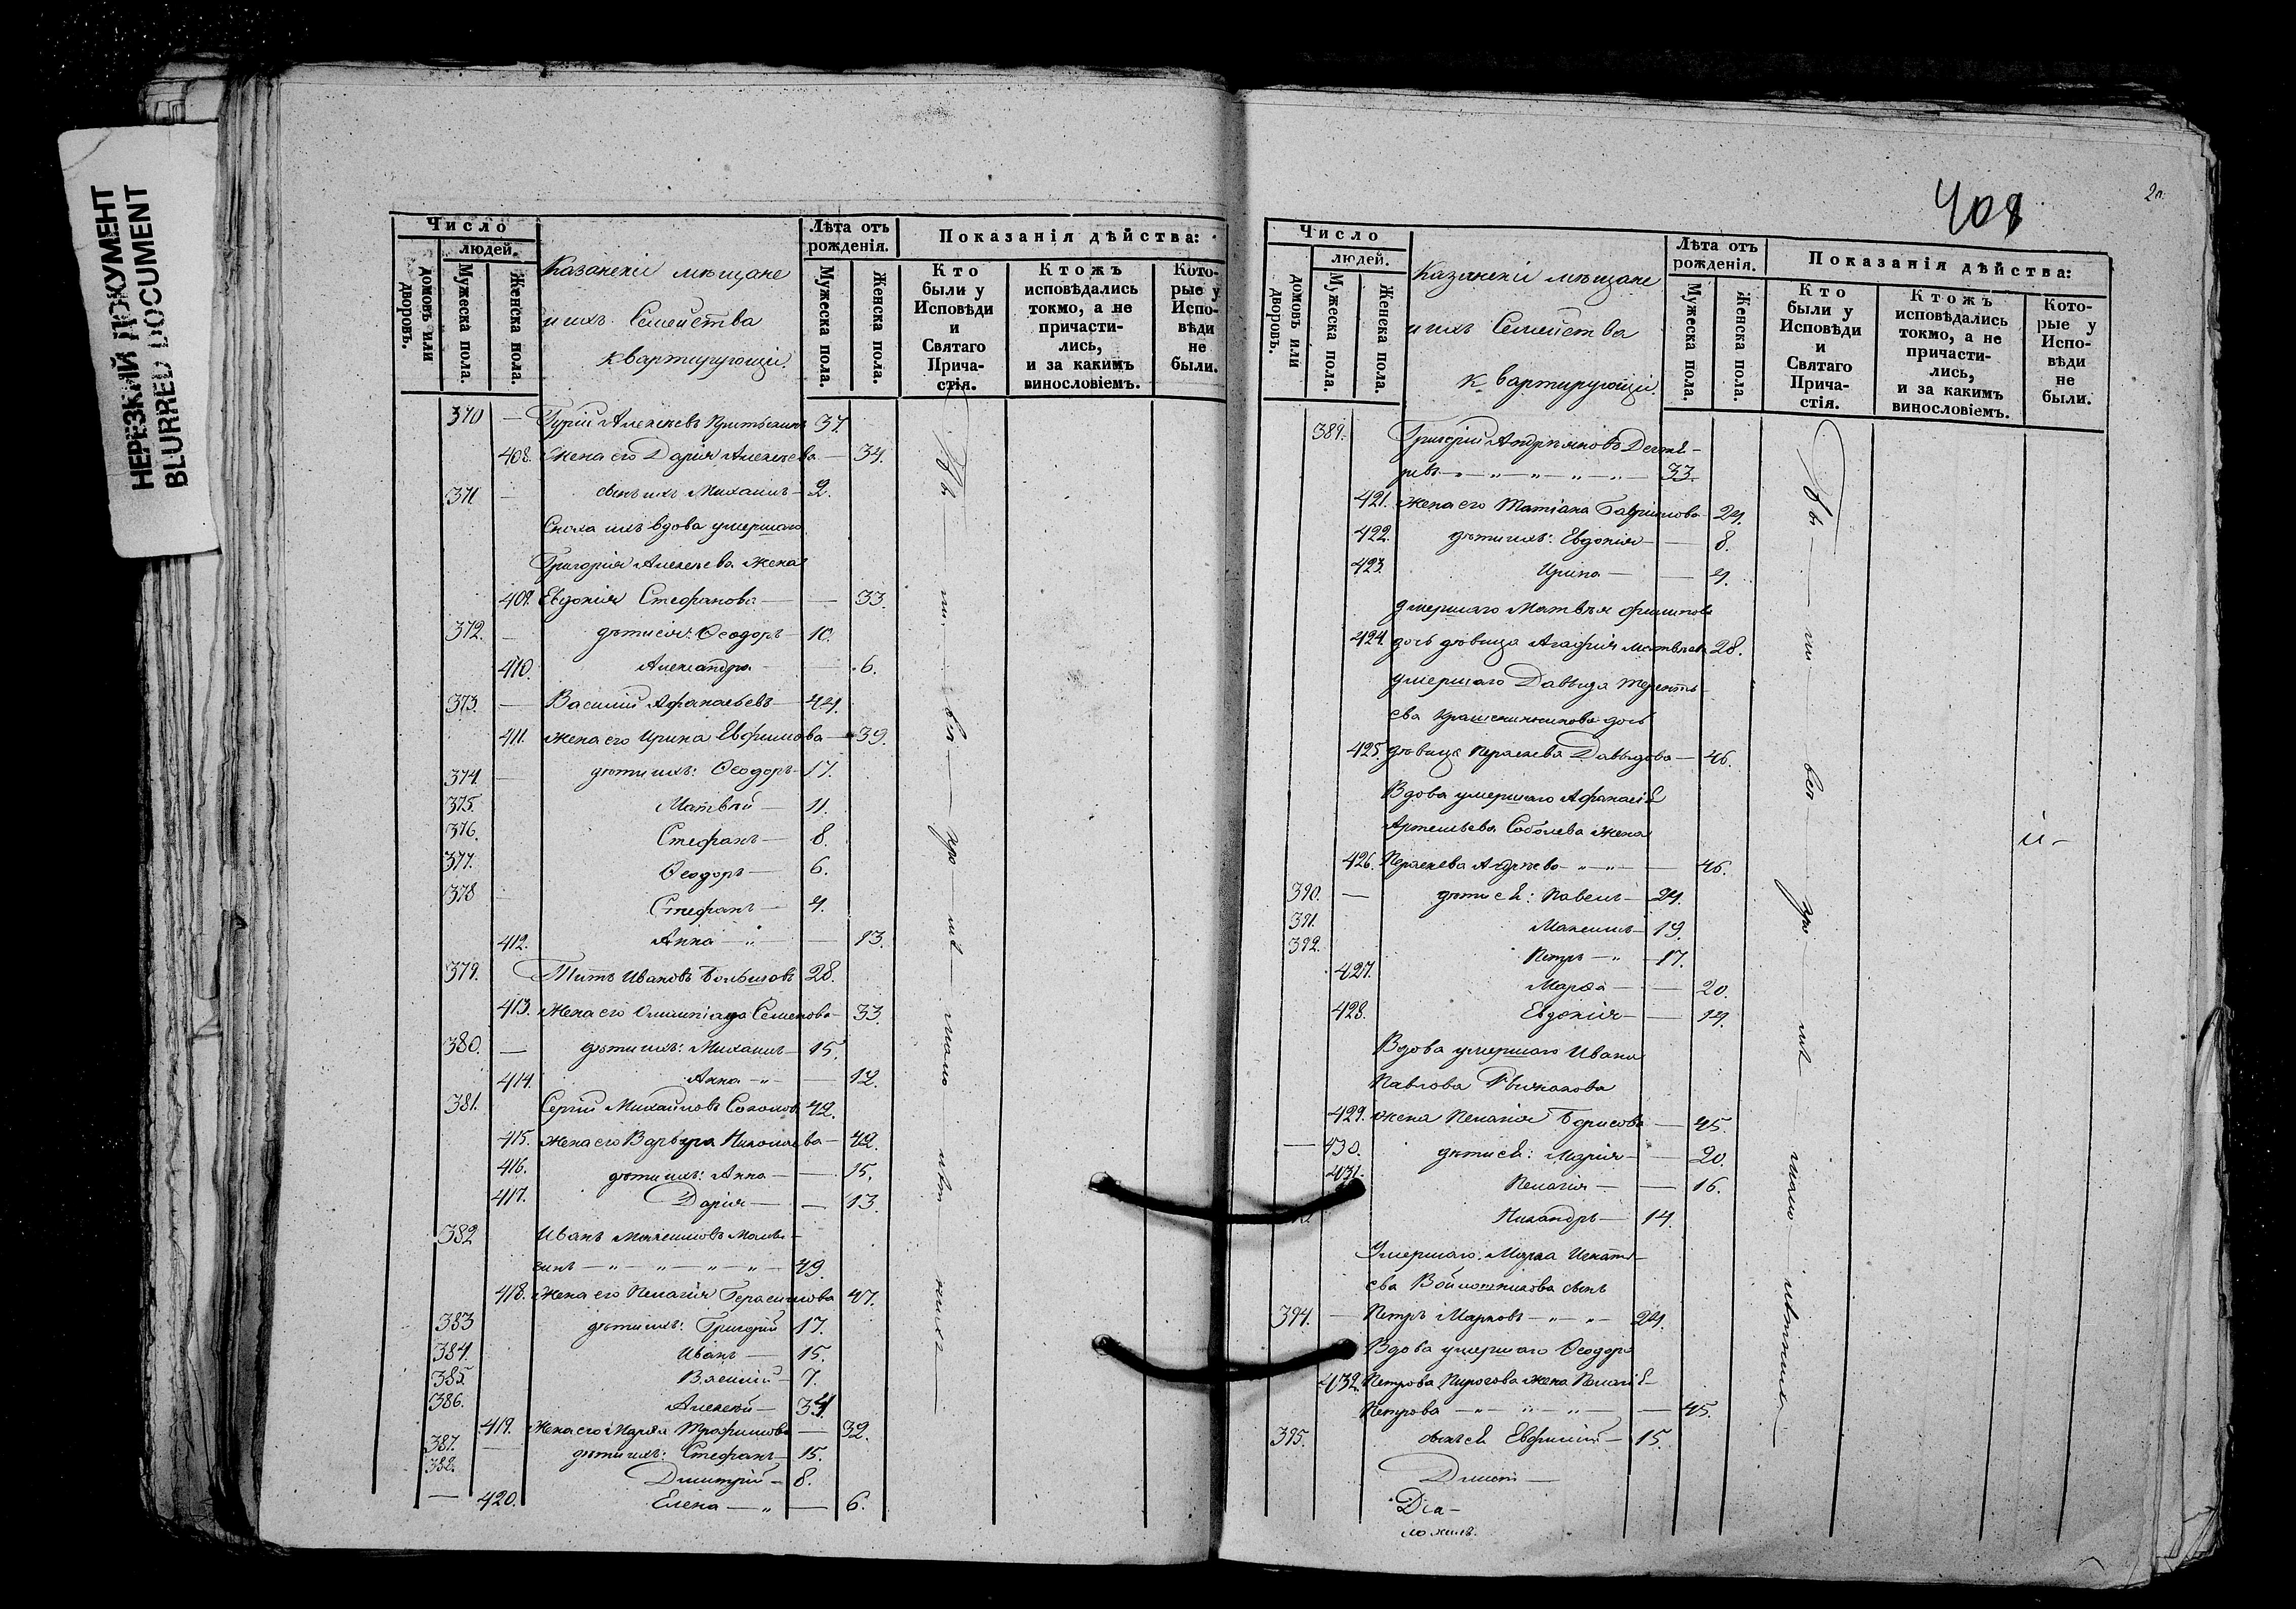 НЕРЕЗКИЙ ДОКУМЕНТ
BLURRED DOCUMENT
Число
людей.
домовъ или дворовъ.
Мужеска пола.
Женска пола.
Казанскіи мѣщане
и ихъ Семейства
квартирующіи.
Лѣта отъ рожденія.
Мужеска пола.
Женска пола.
Показанія дѣйства:
Кто были у Исповѣди и Святаго Причастія.
Ктожъ исповѣдались токмо, а не причастились, и за какимъ винословіемъ.
Которые у Исповѣди не были.
370 — Гурій Алексѣевъ 37
408. Жена его Дарія Алексѣева — 34.
371 — сынъ ихъ Михаилъ — 2.
Сноха ихъ вдова умершаго
Григорія Алексѣева жена
409. Евдокія Стефанова — — 33.
372. — дѣти ея: Ѳеодоръ — 10.
410. Александра — 6.
373. — Василій Афанасьевъ — 44.
411. жена его Ирина Евфимова — 39.
374 — дѣти ихъ: Ѳеодоръ — 17.
375. Матвѣй — 11.
376. Стефанъ — 8.
377. Ѳеодоръ — 6.
378 — Стефанъ — 4.
412. Анна — „ — 13.
379. Титъ Ивановъ 28.
413. Жена его Олимпіада Семенова — 33.
380. — дѣти ихъ: Михаилъ — 15.
414. Анна — „ — 12.
381. Сергій Михайловъ 42.
415. Жена его Варвара Николаева — 42.
416. дѣти ихъ: Анна — — 15.
417. Дарія — — 13.
382 Иванъ
— „ — „ — „ — „ — 49.
418. Жена его Пелагія Герасимова 47.
383 дѣти ихъ: Григорій 17.
384. Иванъ — 15.
385. Василій — 7.
386. Алексѣй — 34
419. Жена его Марѳа Трофимова — 32.
387. — дѣти ихъ: Стефанъ — 15.
388. Димитрій — 8.
— 420. Елена — „ — 6.
408
Число
людей.
домовъ или дворовъ.
Мужеска пола.
Женска пола.
Казанскіи мѣщане
и ихъ Семейства
квартирующіи.
Лѣта отъ рожденія.
Мужеска пола.
Женска пола.
Показанія дѣйства:
Кто были у Исповѣди и Святаго Причастія.
Ктожъ исповѣдались токмо, а не причастились, и за какимъ винословіемъ.
Которые у Исповѣди не были.
389. Григорій Андреяновъ
— „ — „ — „ — „ — 33.
421. жена его Татіана Гаврилова — 24.
422. дѣти ихъ: Евдокія — — 8.
423. Ирина — — 4.
умершаго Матвѣя Филипова
424. дочь дѣвица Агафія Матвѣева 28.
умершаго Давыда Теренть-
ева Крашенинникова дочь
425. дѣвица Параскева Давыдова — 46.
Вдова умершаго Афанасія
Артемьева Соболева жена
426. Параскева Андреева — „ — „ — 46.
390. — дѣти ея: Павелъ — 24.
391. Максимъ — 19.
392. Петръ — „ — 17.
427. Марѳа — — 20.
428. Евдокія — — 14.
Вдова умершаго Ивана
Павлова
429. жена Пелагія Борисова — 45.
— 430. дѣти ея: Марія — — 20.
431. Пелагія — — 16.
Никандръ — 14.
Умершаго Марка Игнать-
ева Войлошникова сынъ
394. — Петръ Марковъ — „ — „ — 24.
Вдова умершаго Ѳеодора
432. Петрова Пирогова жена Пелагія
Петрова — „ — „ — „ — 45.
395. сынъ ея Евфимій — 15.
Діа-